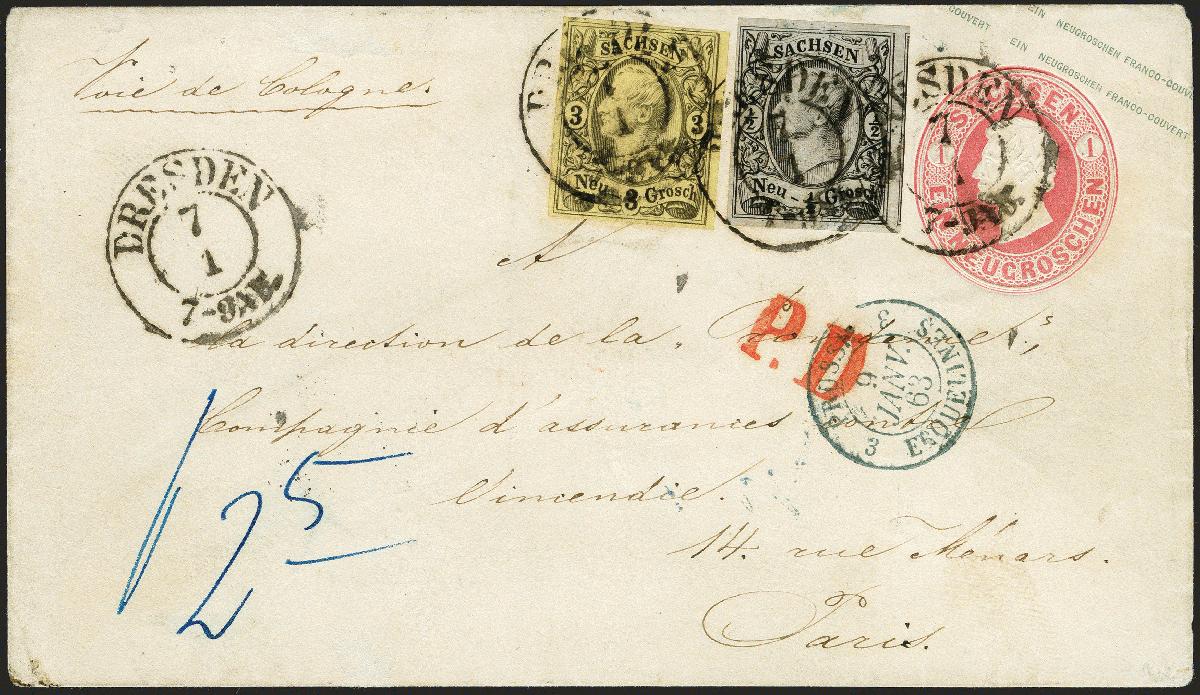 COUVERT EIN NEUGROSCHEN FRANCO-COUVERT
EIN NEUGROSCHEN FRANCO-COUVERT
Voie de Cologne.
SACHSEN
3 3
Neu-3 Grosch
SACHSEN
½ ½
Neu-½ Grosch
SACHSEN
1 1
EIN NEUGROSCHEN
SDEN
7
DRESDEN
7
1
7-9NB.
P.D
3
9
JANV.
63
ERQUELINES
3
A
la direction de la
Compagnie d'assurances contre
l'incendie.
14. rue Ménars.
Paris.
12 5